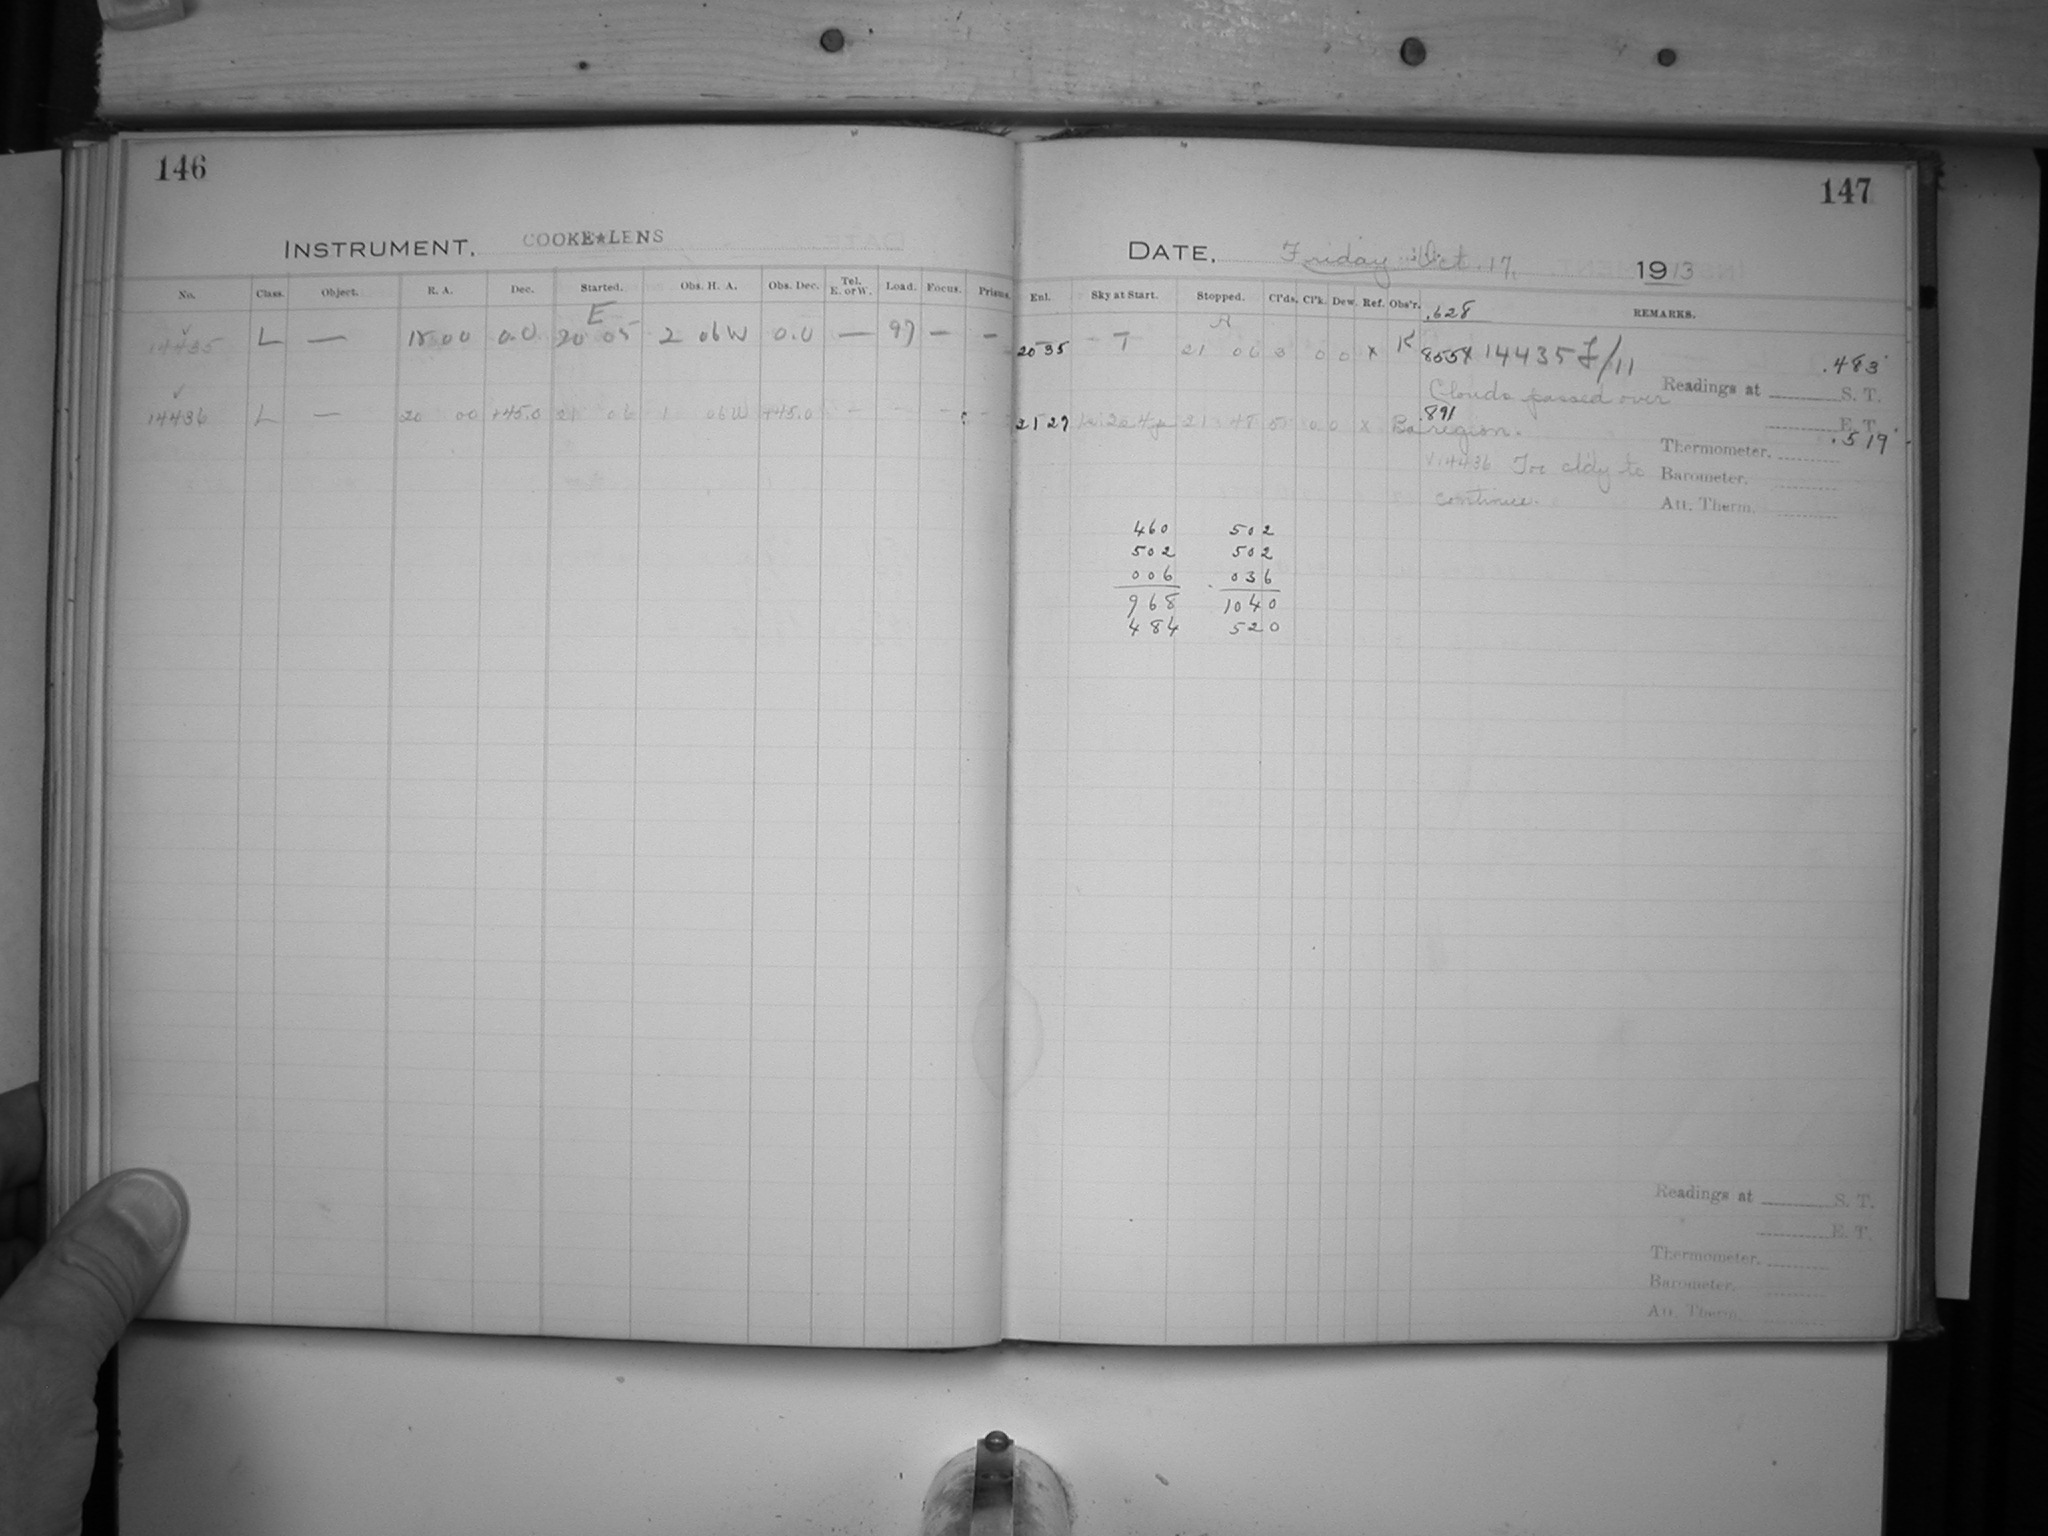 146
INSTRUMENT. COOKE★LENS
No. Class. Object. R. A. Dec. Started. Obs. H. A. Obs. Dec. Tel. E. or W. Load. Focus. Prisms.
E
14435 L — 18 00 0.0 20 05 2 06W 0.0 — 97 — —
14436 L — 20 00 +45.0 21 06 1 06W +45.0 — — — —
147
DATE, Friday Oct. 17, 1913
Enl. Sky at Start. Stopped. Cl'ds. Cl'k. Dew. Ref. Obs'r. REMARKS.
.628
20 35 T 21 06 3 0 0 x K 14435 f/11 .483
Clouds passed over Readings at S. T.
.891
21 27 21 48 5 0 0 x Ba region. E. T.
.519
Thermometer.
14436 Too cldy to Barometer.
continue. Att. Therm.
460 502
502 502
006 036
968 1040
484 520
Readings at S. T.
E. T.
Thermometer.
Barometer.
Att. Therm.